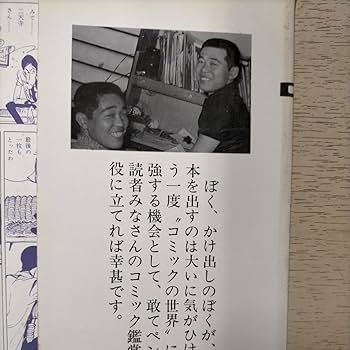 ぼく、かけ出しのぼくが、
本を出すのは大いに気がひけ
う一度〝コミックの世界〟に
強する機会として、敢てペン
読者みなさんのコミック鑑賞
役に立てれば幸甚です。
二天寺
さん
最後の
一枚も
とったわ